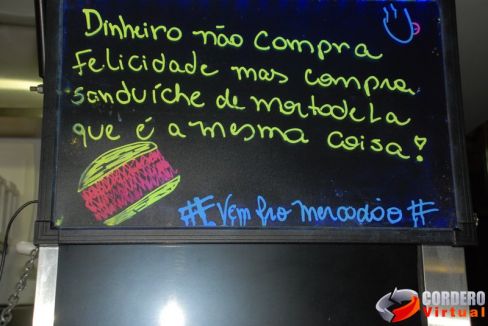 Dinheiro não compra
felicidade mas compra
sanduíche de mortadela
que é a mesma coisa!
#E Vem pro mercadão#
CORDERO
Virtual